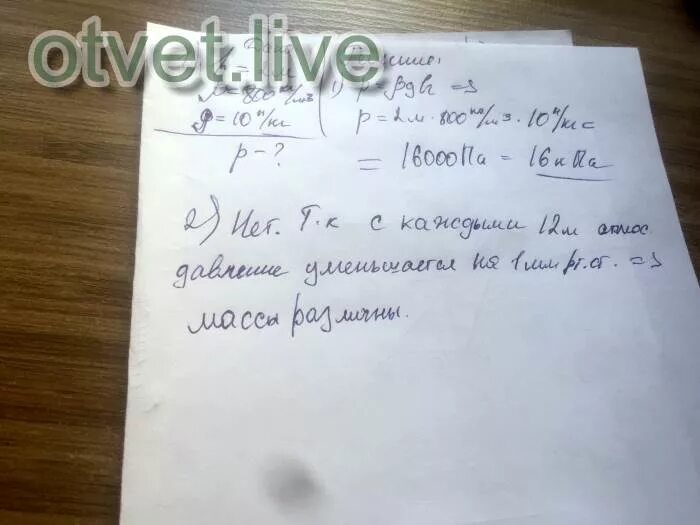 otvet.live
ρ=800 кг/м3 1) p=ρgh =>
g=10 н/кг p=2м·800 кг/м3·10 н/кг=
p-? = 16000Па = 16кПа
2) Нет. Т.к с каждыми 12м атмос
давление уменьшается на 1мм рт.ст. =>
массы различны.